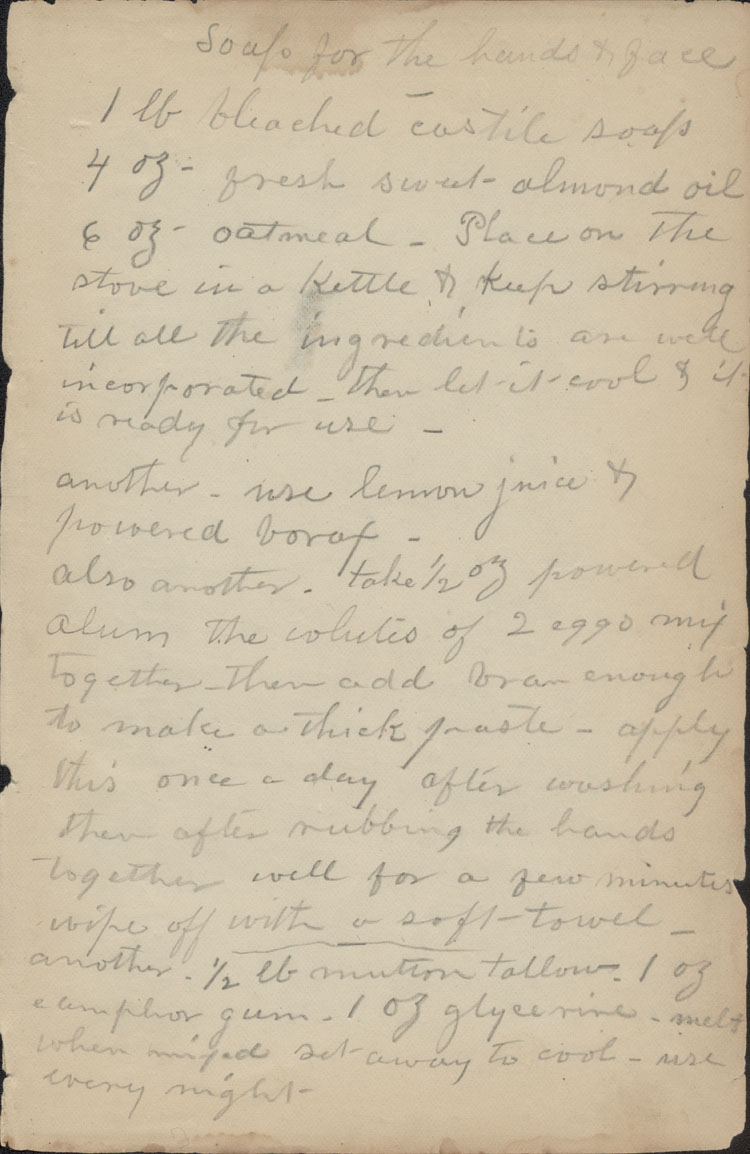 Soap for the hands & face
1 lb bleached castile soap
4 oz - fresh sweet almond oil
6 oz - oatmeal - Place on the
stove in a kettle & keep stirring
till all the ingredients are well
incorporated - then let it cool & it
is ready for use -
another - use lemon juice &
powered borax -
also another - take 1/2 oz powered
alum the whites of 2 eggs mix
together then add bran enough
to make a thick paste - apply
this once a day after washing
then after rubbing the hands
together well for a few minutes
wipe off with a soft towel -
another - 1/2 lb mutton tallow - 1 oz
camphor gum - 1 oz glycerine - melt
when mixed set away to cool - use
every night -